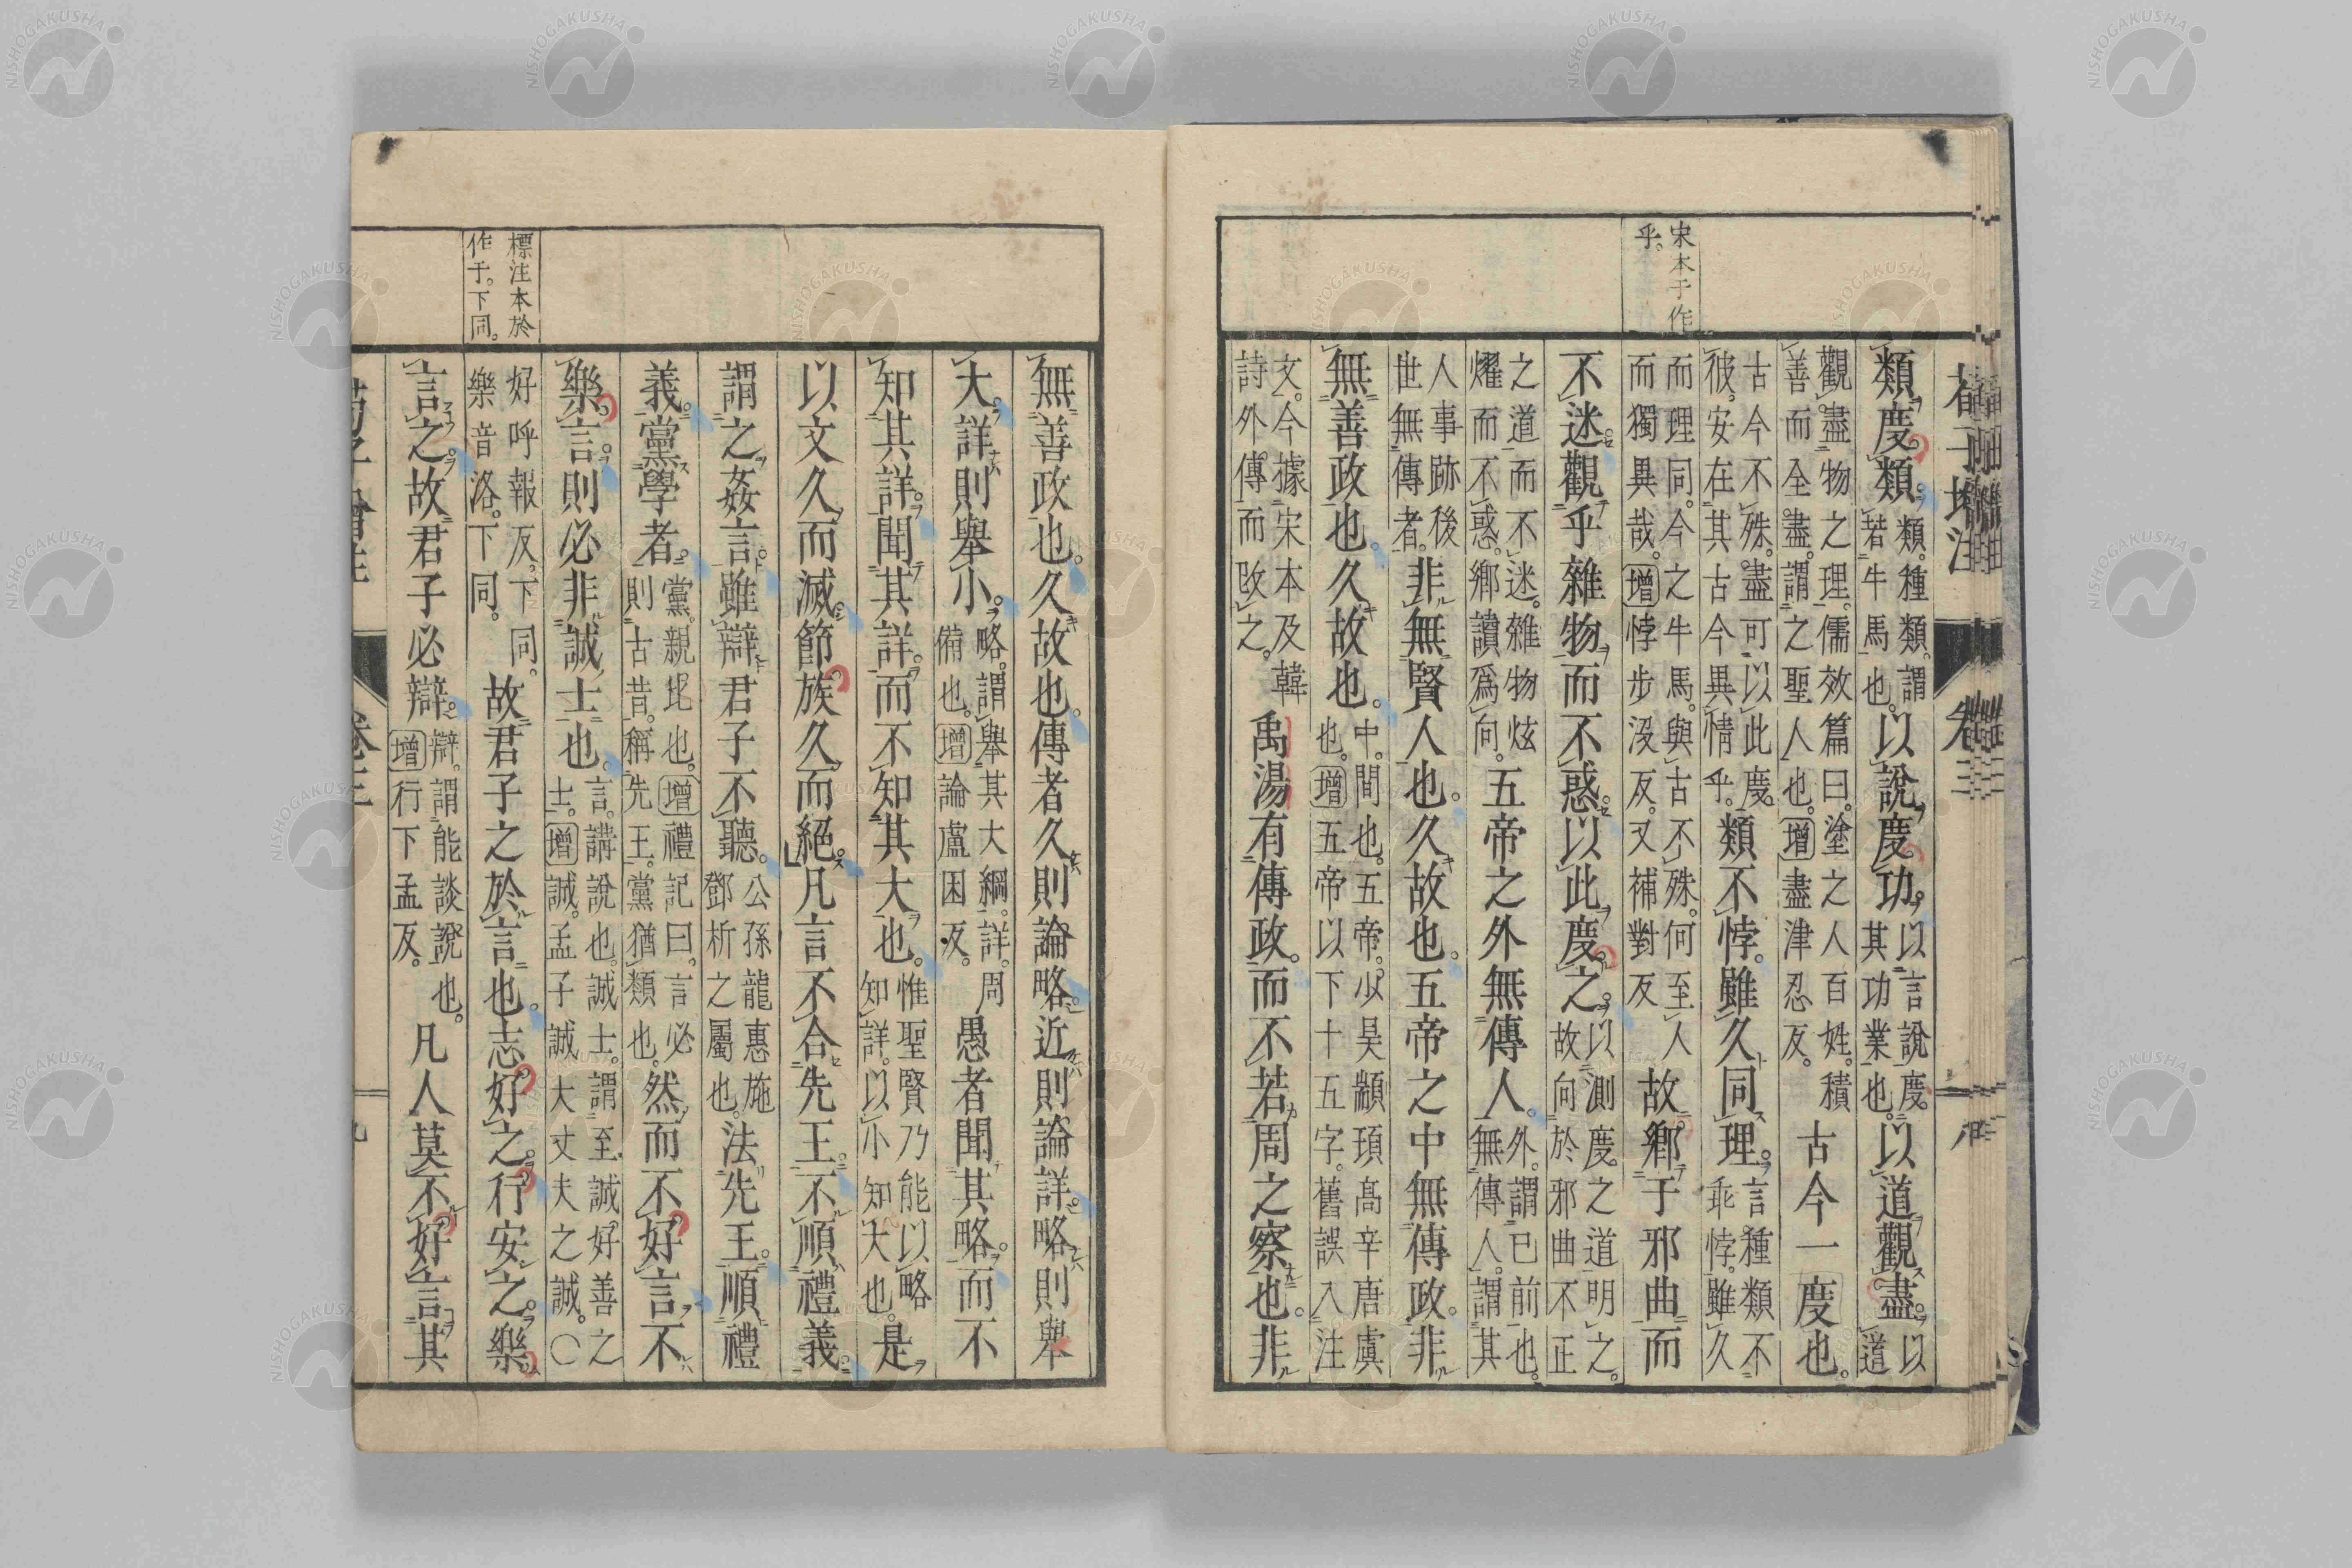 荀子增注
卷三
八
宋本于作
乎。
類度類。類。種類。謂若牛馬也。以說度功。以言說度其功業也。以道觀盡。以道
觀盡物之理。儒效篇曰。塗之人百姓。積善而全盡。謂之聖人也。增盡津忍反。古今一度也。
古今不殊。盡可以此度彼。安在其古今異情乎。類不悖。雖久同理。言種類不乖悖。雖久
而理同。今之牛馬。與古不殊。何至人而獨異哉。增悖步沒反。又補對反故。鄉于邪曲而
不迷。觀乎雜物而不惑。以此度之。以測度之道明之。故向於邪曲不正
之道而不迷。雜物炫燿而不惑。鄉讀爲向。五帝之外無傳人。外。謂已前也。無傳人。謂其
人事跡後世無傳者。非無賢人也。久故也。五帝之中無傳政。非
無善政也。久故也。中。間也。五帝。少昊顓頊高辛唐虞也。增五帝以下十五字。舊誤入注
文。今據宋本及韓詩外傳而改之。禹湯有傳政。而不若周之察也。非
無善政也。久故也。傳者久則論略。近則論詳。略則舉
大。詳則舉小。略。謂舉其大綱。詳。周備也。增論盧困反。愚者聞其略。而不
知其詳。聞其詳。而不知其大也。惟聖賢乃能以略知詳。以小知大也。是
以文久而滅。節族久而絕。凡言不合先王。不順禮義。
謂之姦言。雖辯君子不聽。公孫龍惠施鄧析之屬也。法先王。順禮
義。黨學者。黨。親比也。增禮記曰。言必則古昔。稱先王。黨猶類也。然而不好言。不
樂言。則必非誠士也。言。講說也。誠士。謂至誠好善之士。增誠。孟子誠大丈夫之誠。〇
好呼報反。下同。樂音洛。下同。故君子之於言也。志好之。行安之。樂
言之。故君子必辯。辯。謂能談說也。增行下孟反。凡人莫不好言其
標注本於
作于。下同。